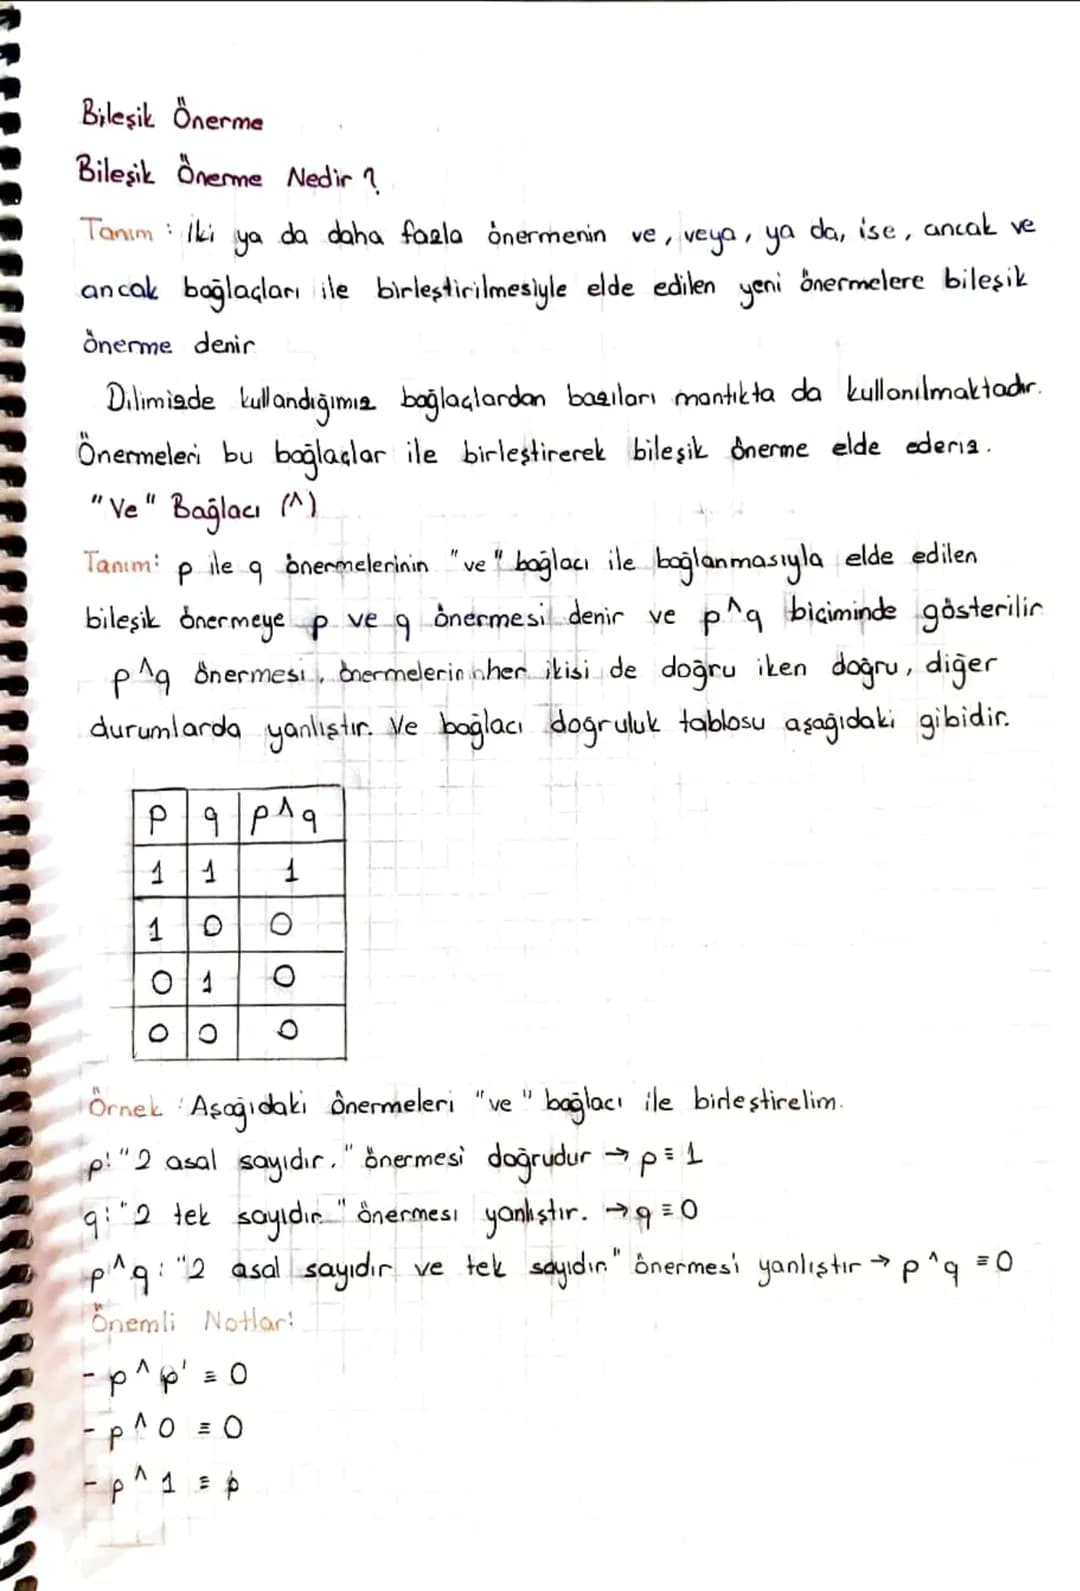 Bileşik Önerme
Bileşik Önerme Nedir ?
Tanım : İki ya da daha fazla önermenin ve, veya, ya da, ise, ancak ve
ancak bağlaçları ile birleştirilmesiyle elde edilen yeni önermelere bileşik
önerme denir
Dilimizde kullandığımız bağlaçlardan bazıları mantıkta da kullanılmaktadır.
Önermeleri bu bağlaçlar ile birleştirerek bileşik önerme elde ederiz.
"Ve" Bağlacı (^)
Tanım: p ile q önermelerinin "ve" bağlacı ile bağlanmasıyla elde edilen
bileşik önermeye p ve q önermesi denir ve p^q biçiminde gösterilir
p^q önermesi, önermelerin her ikisi de doğru iken doğru, diğer
durumlarda yanlıştır. Ve bağlacı doğruluk tablosu aşağıdaki gibidir.
p q p^q
1 1 1
1 0 0
0 1 0
0 0 0
Örnek : Aşağıdaki önermeleri "ve" bağlacı ile birleştirelim.
p: "2 asal sayıdır." önermesi doğrudur → p ≡ 1
q: "2 tek sayıdır" önermesi yanlıştır. → q ≡ 0
p^q : "2 asal sayıdır ve tek sayıdır" önermesi yanlıştır → p^q ≡ 0
Önemli Notlar:
- p^p' ≡ 0
- p^0 ≡ 0
- p^1 ≡ p